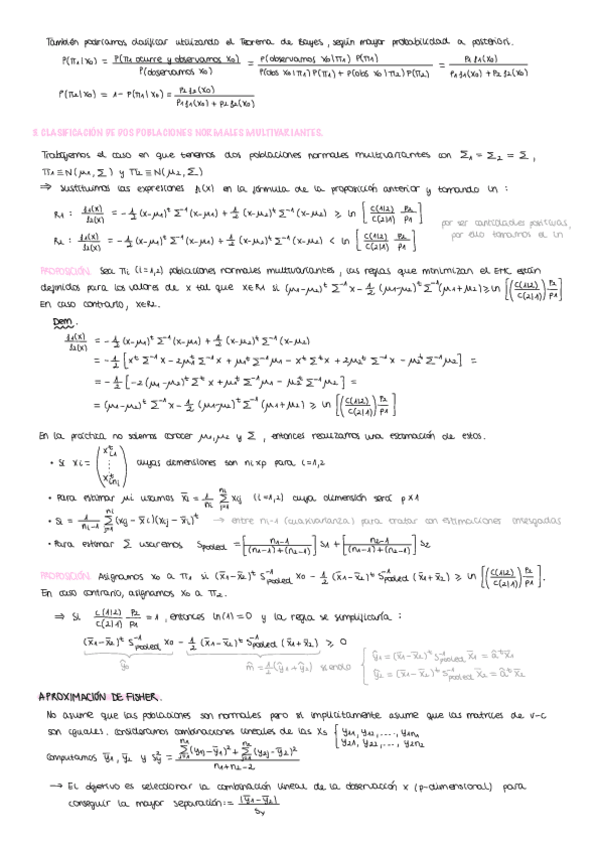 También podríamos clasificar utilizando el Teorema de Bayes, según mayor probabilidad a posteriori.
P(π1|x0) = P(π1 ocurre y observamos x0) / P(observamos x0) = P(observamos x0|π1) P(π1) / P(obs x0|π1) P(π1) + P(obs x0|π2) P(π2) = p1 f1(x0) / p1 f1(x0) + p2 f2(x0)
P(π2|x0) = 1 - P(π1|x0) = p2 f2(x0) / p1 f1(x0) + p2 f2(x0)
CLASIFICACIÓN DE DOS POBLACIONES NORMALES MULTIVARIANTES.
Trabajemos el caso en que tenemos dos poblaciones normales multivariantes con Σ1 = Σ2 = Σ,
π1 ≡ N(μ1, Σ) y π2 ≡ N(μ2, Σ)
⇒ Sustituimos las expresiones fi(x) en la fórmula de la proposición anterior y tomando ln:
R1: f1(x)/f2(x) = -1/2 (x-μ1)^t Σ^-1 (x-μ1) + 1/2 (x-μ2)^t Σ^-1 (x-μ2) ≥ ln [C(1|2)/C(2|1) p2/p1]
por ser cantidades positivas,
R2: f1(x)/f2(x) = -1/2 (x-μ1)^t Σ^-1 (x-μ1) + 1/2 (x-μ2)^t Σ^-1 (x-μ2) < ln [C(1|2)/C(2|1) p2/p1]
por ello tomamos el ln
PROPOSICIÓN. Sea πi (i=1,2) poblaciones normales multivariantes, las reglas que minimizan el EMC están
definidos para los valores de x tal que x∈R1 si (μ1-μ2)^t Σ^-1 x - 1/2 (μ1-μ2)^t Σ^-1 (μ1+μ2) ≥ ln [(C(1|2)/C(2|1)) p2/p1]
En caso contrario, x∈R2.
Dem.
f1(x)/f2(x) = -1/2 (x-μ1)^t Σ^-1 (x-μ1) + 1/2 (x-μ2)^t Σ^-1 (x-μ2)
= -1/2 [x^t Σ^-1 x - 2μ1^t Σ^-1 x + μ1^t Σ^-1 μ1 - x^t Σ^-1 x + 2μ2^t Σ^-1 x - μ2^t Σ^-1 μ2] =
= -1/2 [-2(μ1-μ2)^t Σ^-1 x + μ1^t Σ^-1 μ1 - μ2^t Σ^-1 μ2] =
= (μ1-μ2)^t Σ^-1 x - 1/2 (μ1-μ2)^t Σ^-1 (μ1+μ2) ≥ ln [(C(1|2)/C(2|1)) p2/p1]
En la práctica no solemos conocer μ1, μ2 y Σ, entonces realizamos una estimación de estos.
• Si Xi = (x^t i1 ⋮ x^t ini) cuyas dimensiones son ni×p para i=1,2
• Para estimar μi usamos x̄i = 1/ni Σ xij (i=1,2) cuya dimensión será p×1
• Si = 1/(ni-1) Σ (xij - x̄i)(xij - x̄i)^t → entre ni-1 (cuasivarianza) para tratar con estimaciones insesgadas
• Para estimar Σ usaremos Spooled = [n1-1/(n1-1)+(n2-1)] S1 + [n2-1/(n1-1)+(n2-1)] S2
PROPOSICIÓN. Asignamos x0 a π1 si (x̄1-x̄2)^t S^-1 pooled x0 - 1/2 (x̄1-x̄2)^t S^-1 pooled (x̄1+x̄2) ≥ ln [(C(1|2)/C(2|1)) p2/p1].
En caso contrario, asignamos x0 a π2.
⇒ Si C(1|2)/C(2|1) p2/p1 = 1, entonces ln(1)=0 y la regla se simplificaría:
(x̄1-x̄2)^t S^-1 pooled x0 - 1/2 (x̄1-x̄2)^t S^-1 pooled (x̄1+x̄2) ≥ 0
ŷ0 m̂ = 1/2 (ŷ1+ŷ2) siendo { ŷ1 = (x̄1-x̄2)^t S^-1 pooled x̄1 = â^t x̄1
ŷ2 = (x̄1-x̄2)^t S^-1 pooled x̄2 = â^t x̄2
APROXIMACIÓN DE FISHER.
No asume que las poblaciones son normales pero sí implícitamente asume que las matrices de v-c
son iguales. Consideramos combinaciones lineales de las Xs { y11, y12, ..., y1n1
y21, y22, ..., y2n2
Computamos ȳ1, ȳ2 y s²y = Σ(y1j-ȳ1)² + Σ(y2j-ȳ2)² / n1+n2-2
→ El objetivo es seleccionar la combinación lineal de la observación x (p-dimensional) para
conseguir la mayor separación := |ȳ1-ȳ2| / sy